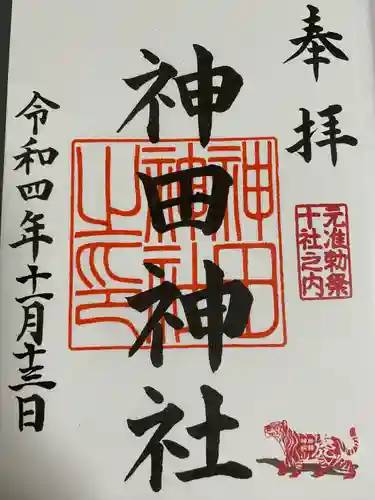 奉拝
元准勅祭
十社之内
神田神社
神田
神社
之印
令和四年十一月十三日